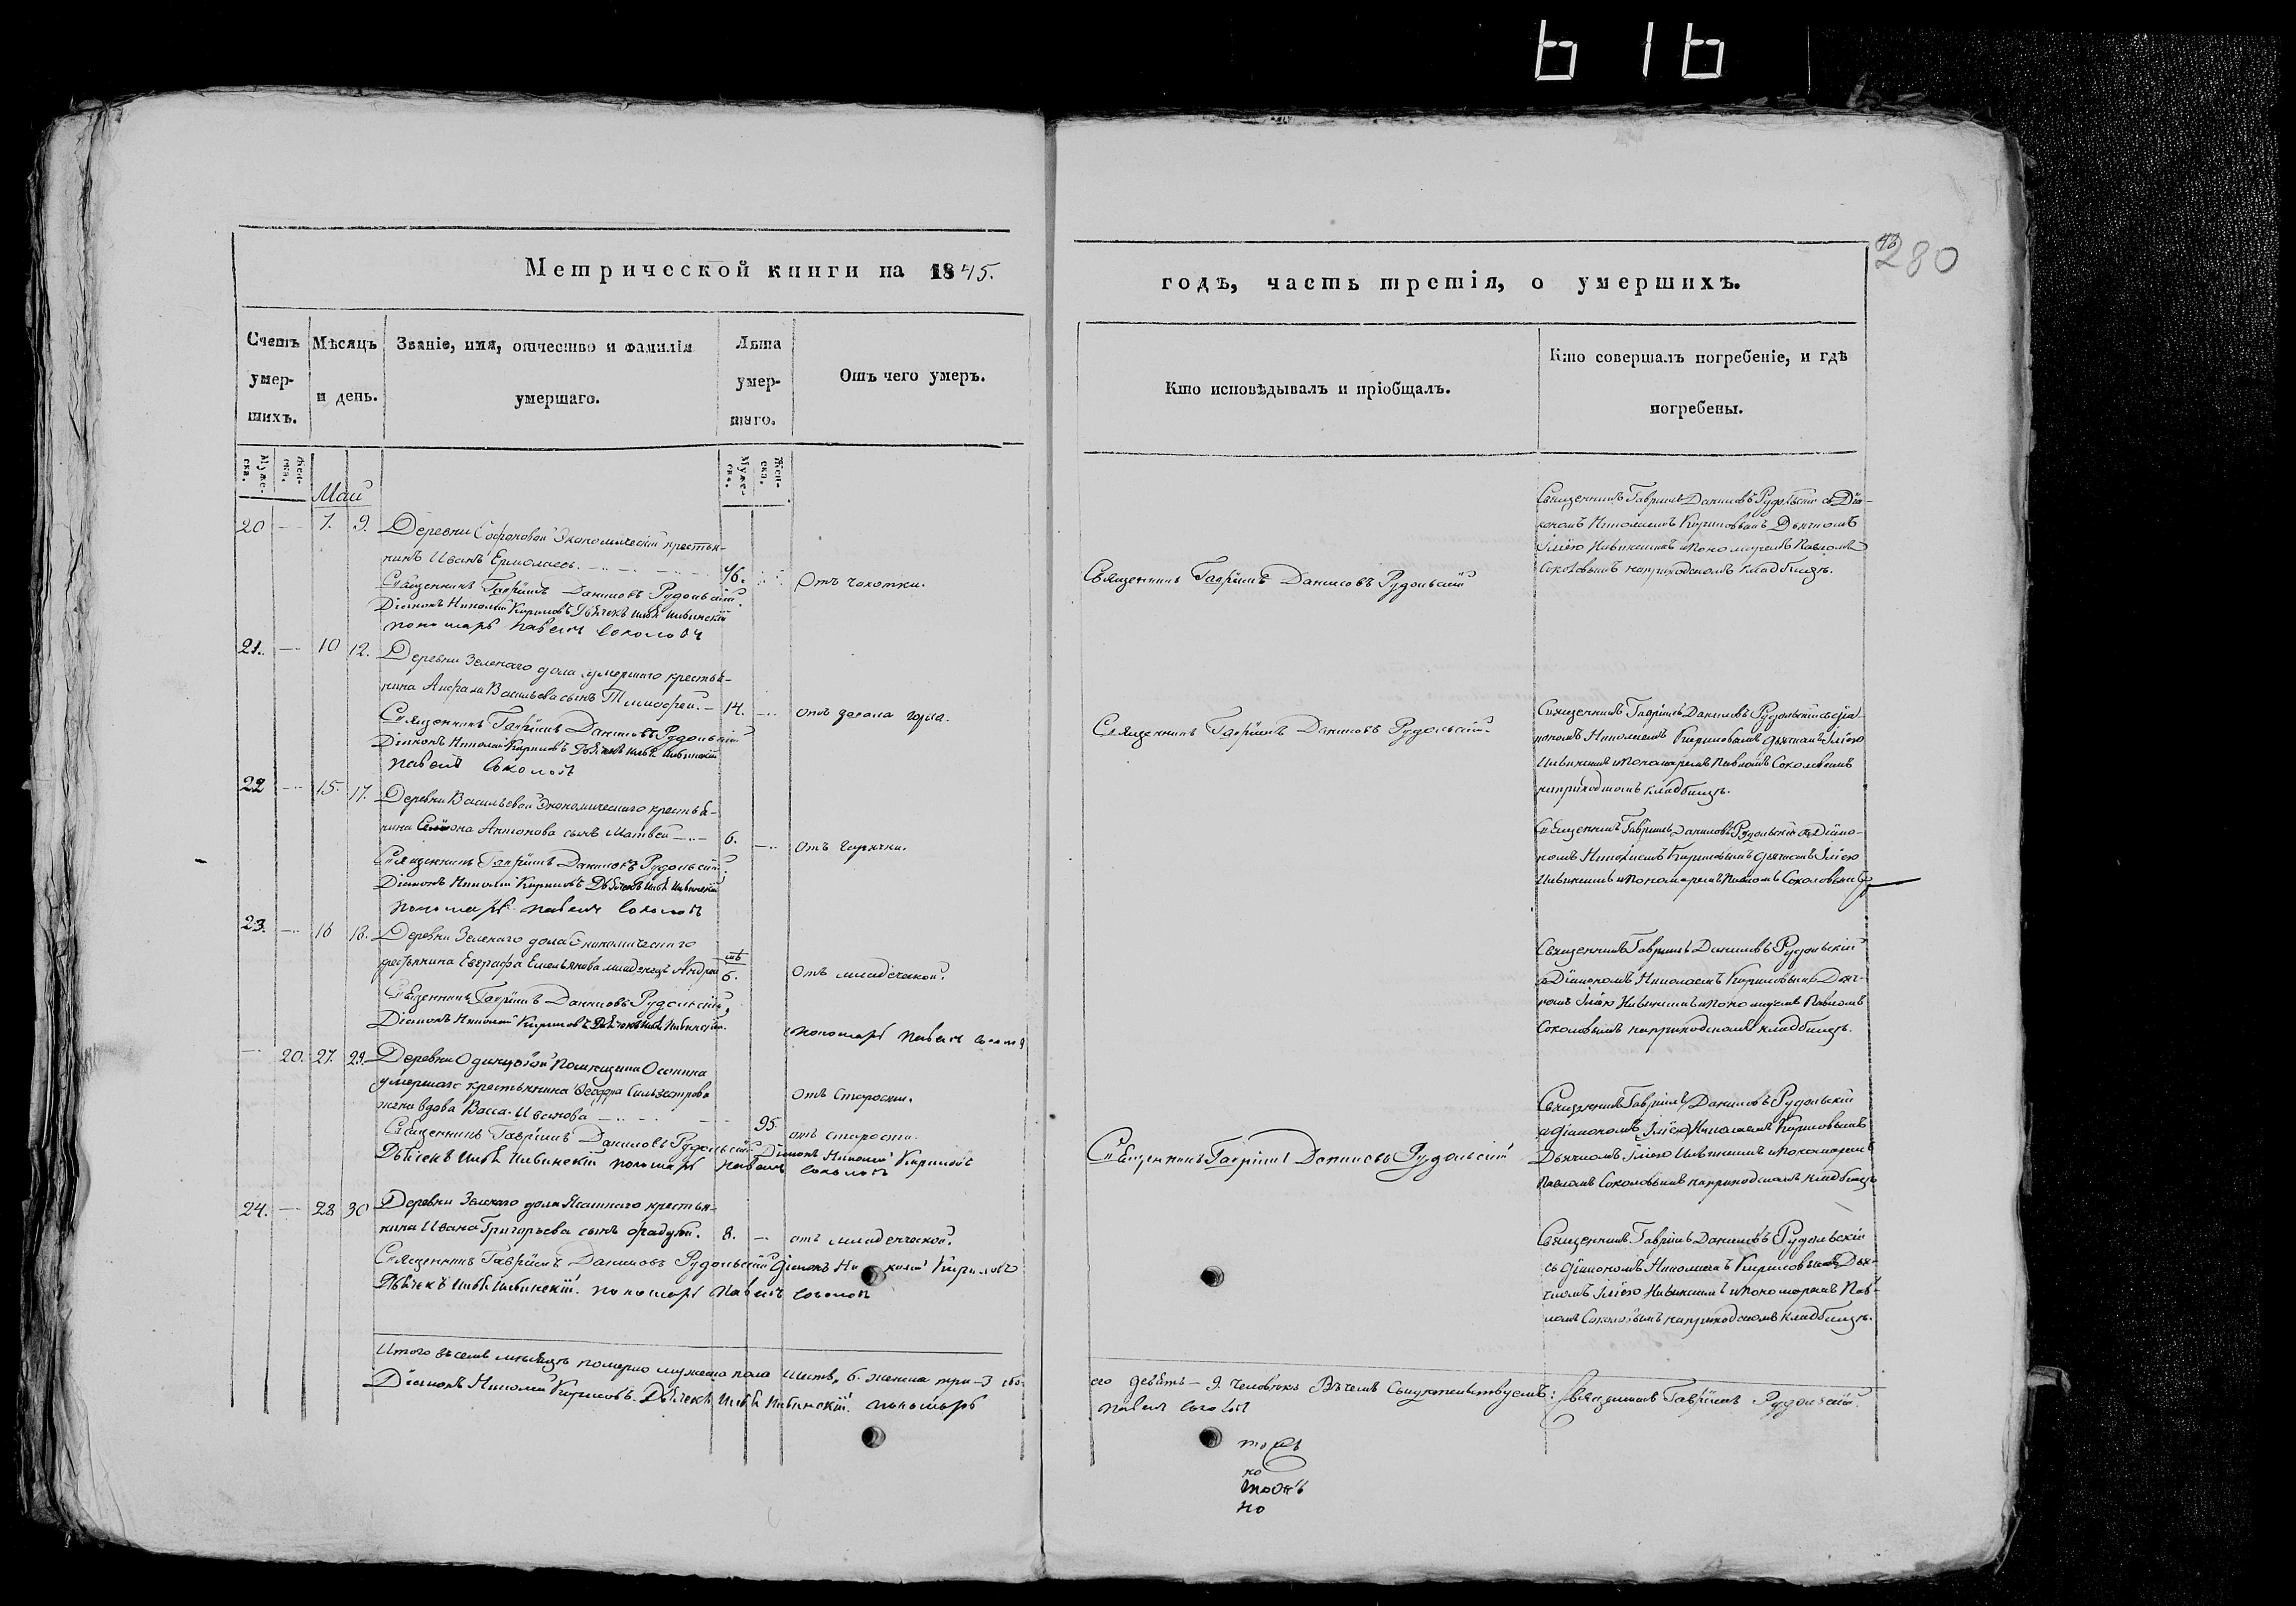 616
Метрической книги на 1845.
годъ, часть третія, о умершихъ.
280
Счетъ умер- шихъ.
Мѣсяцъ и день.
Званіе, имя, отчество и фамилія умершаго.
Лѣта умер- шаго.
Отъ чего умеръ.
Кто исповѣдывалъ и пріобщалъ.
Кто совершалъ погребеніе, и гдѣ погребены.
Муже- ска.
Жен- ска.
Муже- ска.
Жен- ска.
Май
20 7. 9. Деревни Софоновой Экономическій крестья-
нинъ Иванъ Ермолаевъ. 46. Отъ чахотки.
Священникъ Гавріилъ Даниловъ Рудольскій
Діаконъ Николай Кириловъ Дьячекъ Илья Нивинскій
пономарь Павелъ Соколовъ
Священникъ Гавріилъ Даниловъ Рудольскій
Священникъ Гавріилъ Даниловъ Рудольскій съ Діа-
кономъ Николаемъ Кириловымъ Дьячкомъ
Ілією Нивинскимъ и Пономаремъ Павломъ
Соколовымъ на приходскомъ кладбищѣ.
21. 10 12. Деревни Зеленаго дола умершаго крестья-
нина Васильева сынъ Тимофей. 14.
Священникъ Гавріилъ Даниловъ Рудольскій
Діаконъ Николай Кириловъ Дьячекъ Илья Нивинскій
Павелъ Соколовъ
Священникъ Гавріилъ Даниловъ Рудольскій.
Священникъ Гавріилъ Даниловъ Рудольскій съ Діа-
кономъ Николаемъ Кириловымъ Дьячкомъ Ілією
Нивинскимъ и Пономаремъ Павломъ Соколовымъ
на приходскомъ кладбищѣ.
22 15. 17. Деревни Васильевой Экономическаго крестья-
нина Семіона Антонова сынъ Матвей 6. Отъ горячки.
Священникъ Гавріилъ Даниловъ Рудольскій
Діаконъ Николай Кириловъ Дьячекъ Илья Нивинскій
пономарь Павелъ Соколовъ
Священникъ Гавріилъ Даниловъ Рудольскій съ Діако-
номъ Николаемъ Кириловымъ Дьячкомъ Ілією
Нивинскимъ и Пономаремъ Павломъ Соколовымъ
23. 16 18. Деревни Зеленаго дола Экономическаго
крестьянина Евграфа Емельянова младенецъ Андрей 6. Отъ младенческой.
Священникъ Гавріилъ Даниловъ Рудольскій,
Діаконъ Николай Кириловъ Дьячекъ Илья Нивинскій.
пономарь Павелъ
Священникъ Гавріилъ Даниловъ Рудольскій
съ Діакономъ Николаемъ Кириловымъ Дьяч-
комъ Ілією Нивинскимъ и Пономаремъ Павломъ
Соколовымъ на приходскомъ кладбищѣ.
20. 27. 29. Деревни Одинцовой Помещика Осокина
умершаго крестьянина Феодора Сильвестрова
жена вдова Васса Иванова 95 отъ старости.
отъ старости.
Священникъ Гавріилъ Даниловъ Рудольскій Діаконъ Николай Кириловъ
Дьячекъ Илья Нивинскій пономарь Павелъ Соколовъ
Священникъ Гавріилъ Даниловъ Рудольскій
Священникъ Гавріилъ Даниловъ Рудольскій
съ Діакономъ Николаемъ Кириловымъ
Дьячкомъ Ілією Нивинскимъ и Пономаремъ
Павломъ Соколовымъ на приходскомъ кладбищѣ
24. 28 30 Деревни Зеленаго дола Ясашнаго крестья-
нина Ивана Григорьева сынъ 8. отъ младенческой.
Священникъ Гавріилъ Даниловъ Рудольскій Діаконъ Николай Кириловъ
Дьячекъ Илья Нивинскій. пономарь Павелъ Соколовъ
Священникъ Гавріилъ Даниловъ Рудольскій
съ Діакономъ Николаемъ Кириловымъ Дья-
чкомъ Ілією Нивинскимъ и Пономаремъ Пав-
ломъ Соколовымъ на приходскомъ кладбищѣ.
Итого въ семъ мѣсяцѣ померло мужеска пола 6. женска три – 3
его девять – 9. человекъ Въ чемъ Свидетельствуемъ: Священникъ Гавріилъ Рудольскій.
Діаконъ Николай Кириловъ. Дьячекъ Илья Нивинскій. пономарь
Павелъ Соколовъ